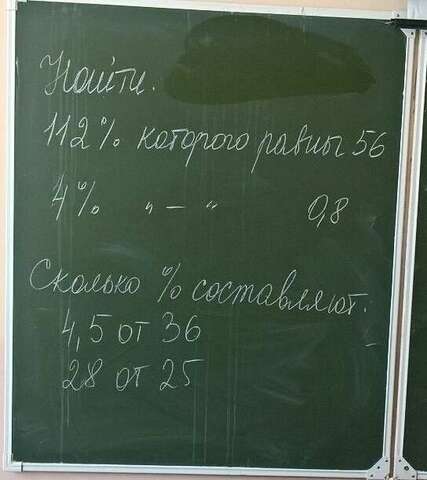 Найти.
112% которого равны 56
4% „ — “ 0,8
Сколько % составляют.
4,5 от 36
28 от 25